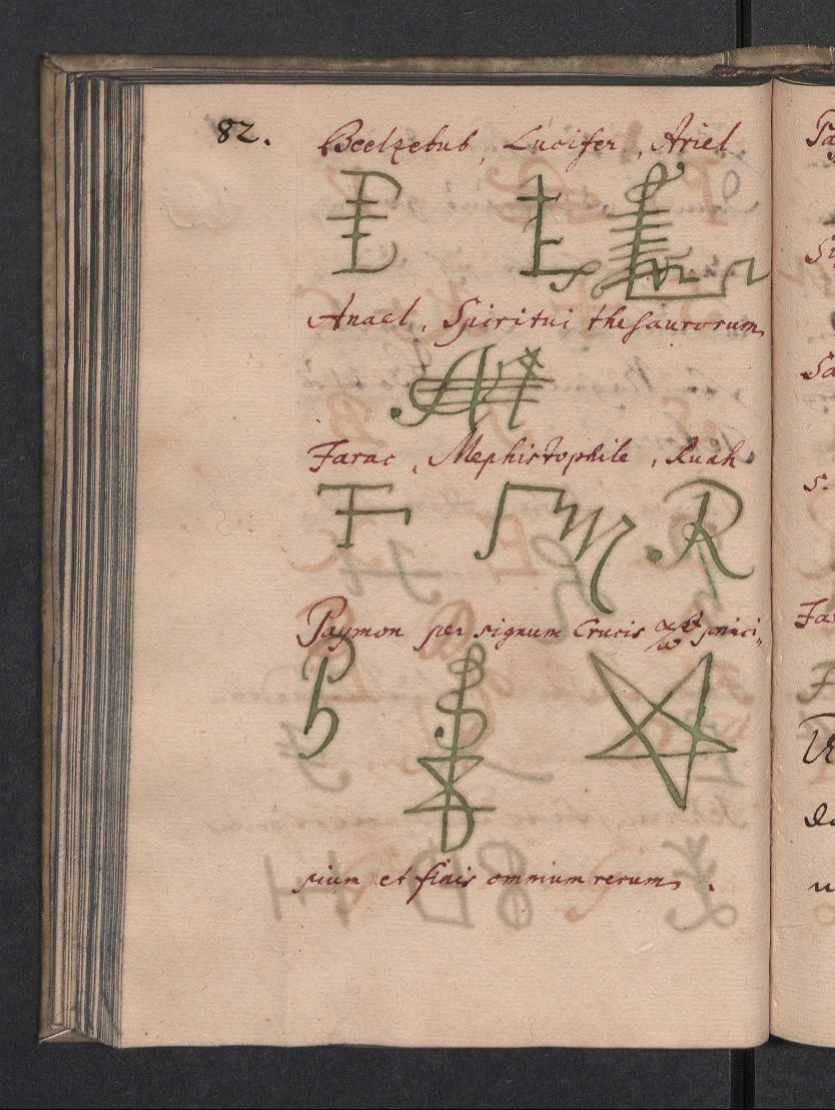 82.
Beelzebub, Lucifer, Ariel
Anael, Spiritui thesaurorum,
Farac, Mephistophile, Ruah.
Paymon per signum Crucis princi„
pium et finis omnium rerum.